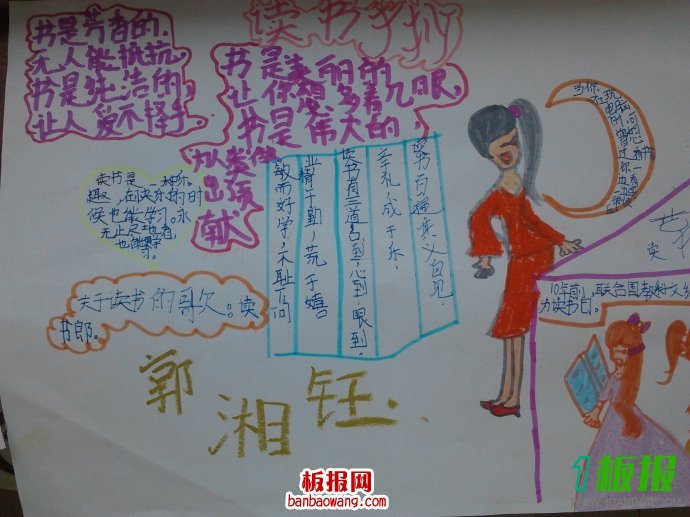 读书手抄
书是芳香的.
无人能抵抗,
书是纯洁的,
让人爱不择手.
书是美丽的
让你想多看几眼,
书是伟大的,
为人类做
出贡
献
读书是一种乐
趣,在快乐的同时
侯也能学习.永
无止尽地看,
也能学
习。
读书百遍其义自见.
立于礼,成于乐.
读书有三道:口到,心到,眼到.
业精于勤,荒于嬉
敏而好学,不耻下问
关于读书的哥欠。读
书郎。
郭湘钰.
当你
在玩
电脑
10年前,联合国教科文组
为读书日。
板报网
banbaowang.com
板报